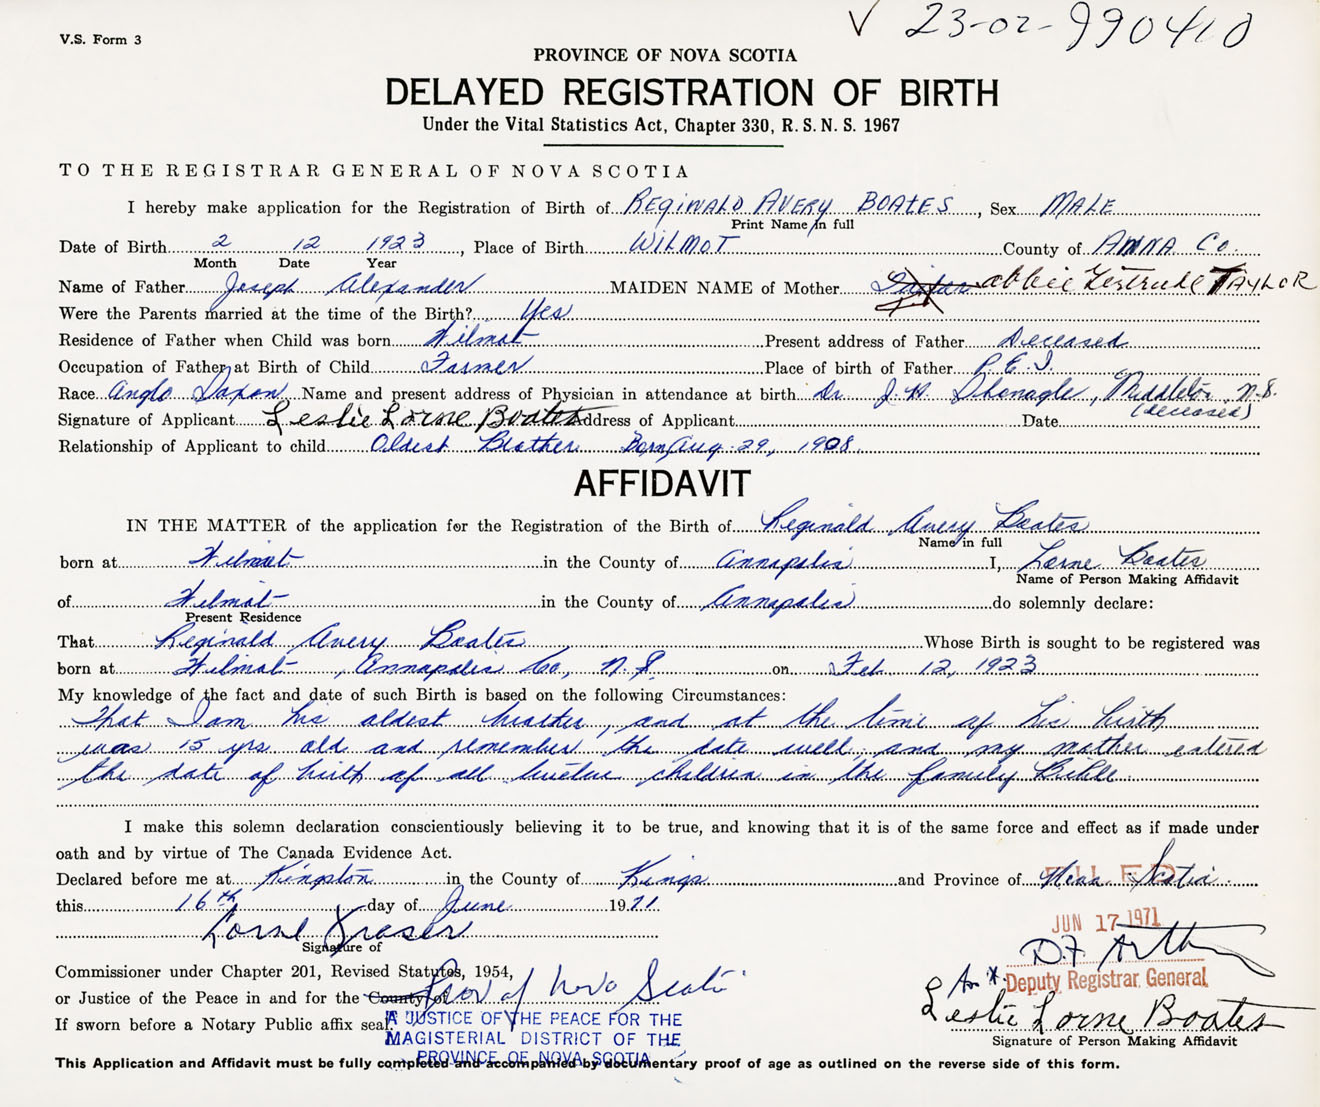 V.S. Form 3
✓ 23-02-990410
PROVINCE OF NOVA SCOTIA
DELAYED REGISTRATION OF BIRTH
Under the Vital Statistics Act, Chapter 330, R. S. N. S. 1967
TO THE REGISTRAR GENERAL OF NOVA SCOTIA
I hereby make application for the Registration of Birth of REGINALD AVERY BOATES, Sex MALE
Print Name in full
Date of Birth 2 12 1923, Place of Birth WILMOT County of ANNA Co.
Month Date Year
Name of Father Joseph Alexander MAIDEN NAME of Mother abbie Gertrude TAYLOR
Were the Parents married at the time of the Birth? Yes
Residence of Father when Child was born Wilmot Present address of Father Deceased
Occupation of Father at Birth of Child Farmer Place of birth of Father P.E.I.
Race Anglo Saxon Name and present address of Physician in attendance at birth Dr. J. A. Sponagle, Middleton, N.S.
(deceased)
Signature of Applicant Leslie Lorne Boates Address of Applicant Date
Relationship of Applicant to child Oldest Brother Born Aug. 29, 1908.
AFFIDAVIT
IN THE MATTER of the application for the Registration of the Birth of Reginald Avery Boates
Name in full
born at Wilmot in the County of Annapolis I, Lorne Boates
Name of Person Making Affidavit
of Wilmot in the County of Annapolis do solemnly declare:
Present Residence
That Reginald Avery Boates Whose Birth is sought to be registered was
born at Wilmot, Annapolis Co., N.S. on Feb 12, 1923
My knowledge of the fact and date of such Birth is based on the following Circumstances:
That I am his oldest brother, and at the time of his birth
was 15 yrs old and remember the date well, and my mother entered
the date of birth of all twelve children in the family Bible.
I make this solemn declaration conscientiously believing it to be true, and knowing that it is of the same force and effect as if made under
oath and by virtue of The Canada Evidence Act.
Declared before me at Kingston in the County of Kings and Province of Nova Scotia
FILED
this 16th day of June 1971
JUN 17 1971
Lorne Fraser
Signature of
Commissioner under Chapter 201, Revised Statutes, 1954,
Deputy Registrar General
or Justice of the Peace in and for the County of Prov of Nova Scotia
If sworn before a Notary Public affix seal.
A JUSTICE OF THE PEACE FOR THE
MAGISTERIAL DISTRICT OF THE
PROVINCE OF NOVA SCOTIA
Leslie Lorne Boates
Signature of Person Making Affidavit
This Application and Affidavit must be fully completed and accompanied by documentary proof of age as outlined on the reverse side of this form.